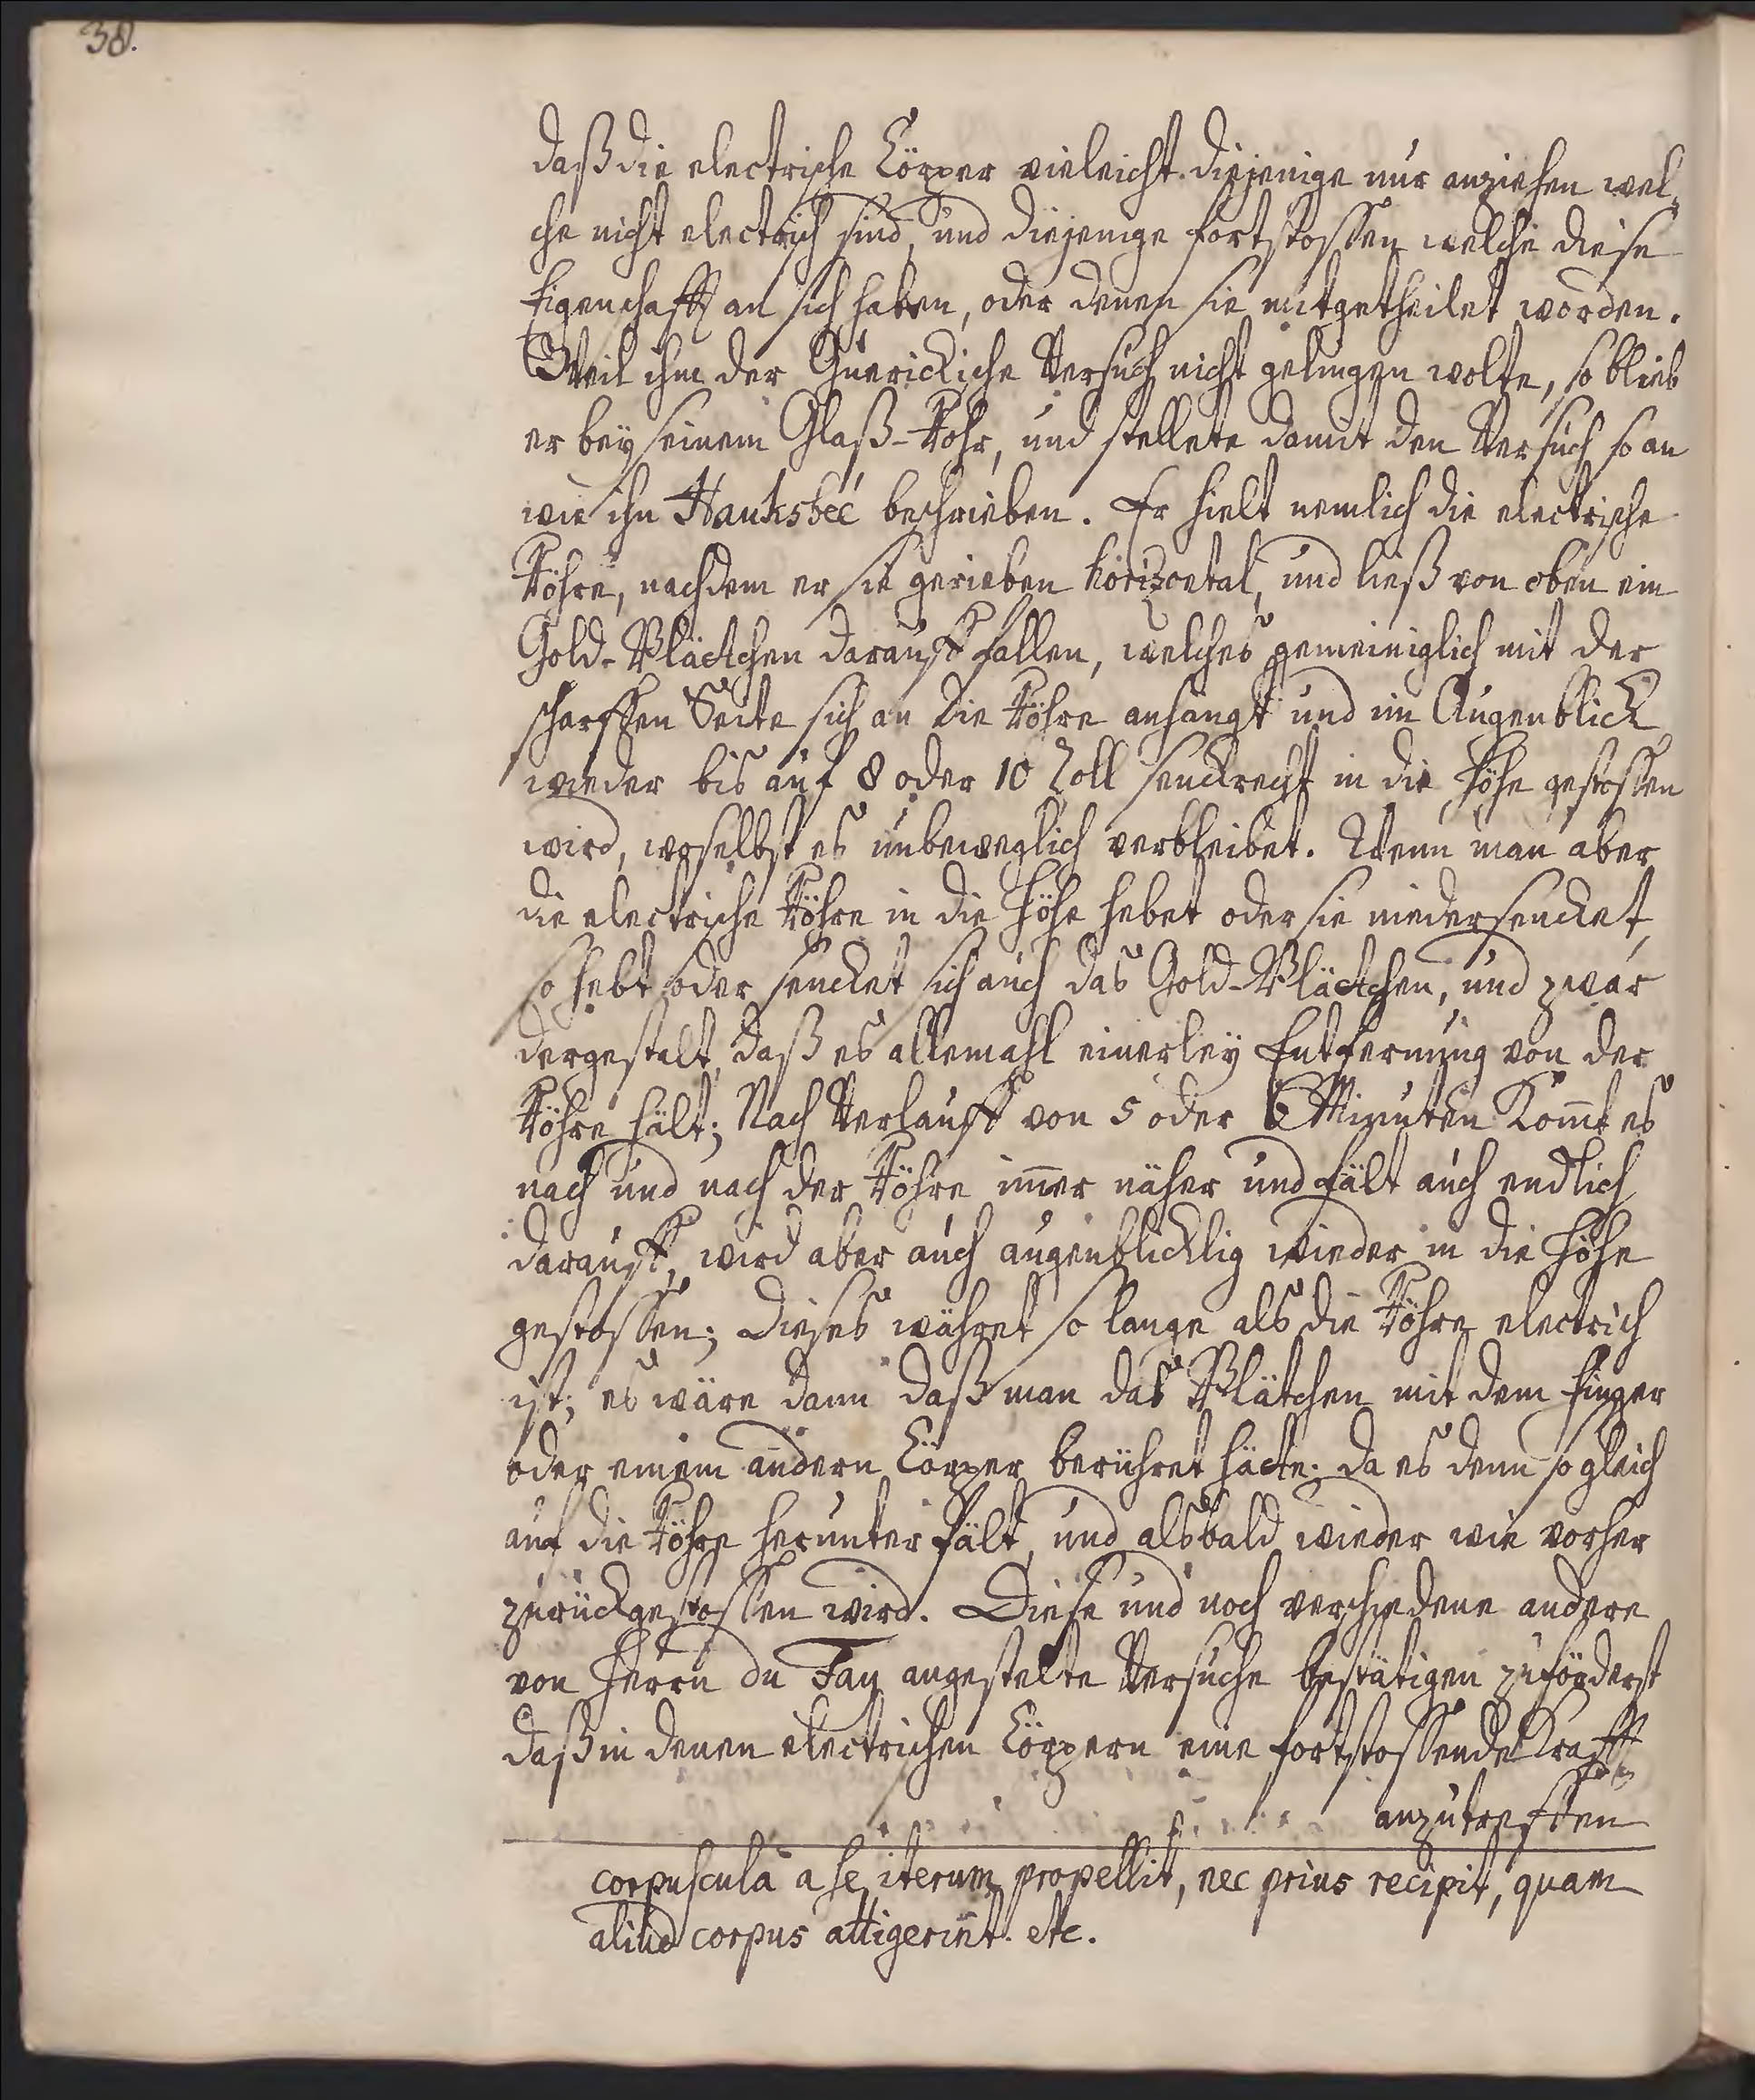 38.
daß die electrische Cörper vieleicht diejenige nur anziehen wel-
che nicht electrisch sind, und diejenige fortstossen welche diese
Eigenschafft an sich haben, oder denen sie mitgetheilet worden.
Weil ihm der Guerickische Versuch nicht gelingen wolte, so blieb
er bey seinem Glaß-Rohr, und stellete damit den Versuch so an
wie ihn Hauksbée beschrieben. Er hielt nemlich die electrische
Röhre, nachdem er sie gerieben horizontal, und ließ von oben ein
Gold-Blättchen darauff fallen, welches gemeiniglich mit der
scharffen Seite sich an die Röhre anhangt und im Augenblick
wieder bis auf 8 oder 10 Zoll senckrecht in die Höhe gestossen
wird, woselbst es unbeweglich verbleibet. Wenn man aber
die electrische Röhre in die Höhe hebet oder sie niedersencket,
so hebt oder sencket sich auch das Gold-Blättchen, und zwar
dergestalt, daß es allemahl einerley Entfernung von der
Röhre hält; Nach Verlauff von 5 oder 6 Minuten kom̄t es
nach und nach der Röhre im̄er näher und fält auch endlich
darauff, wird aber auch augenblicklig wieder in die Höhe
gestossen; Dieses währet so lange als die Röhre electrich
ist; es wäre dann daß man das Blätchen mit dem Finger
oder einem andern Cörper berühret hätte; da es denn so gleich
auf die Röhre herunter fält, und alsbald wieder wie vorher
zurückgestossen wird. Diese und noch verschiedene andere
von Herrn du Fay angestelte Versuche bestätigen zuförderst
daß in denen electrichen Cörpern eine fortstossende Krafft
anzutreffen
corpuscula a se iterum propellit, nec prius recipit, quam
aliud corpus attigerint. etc.